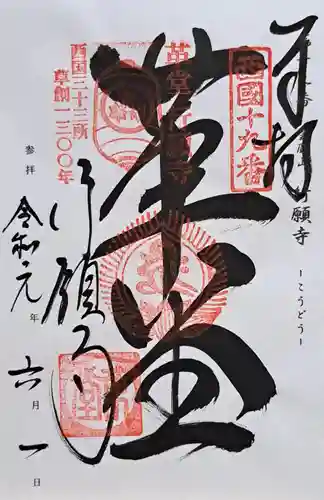 奉拝
願寺
ーこうどうー
西國十九番
革堂
革堂行願寺
西国三十三所
草創一三〇〇年
行願寺
参拝
令和元年
六月一日